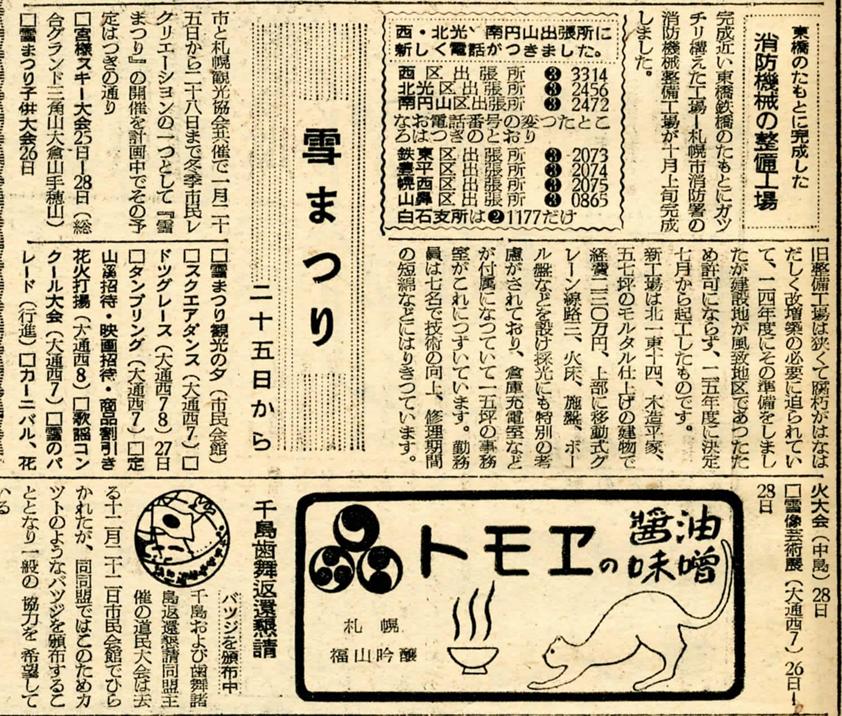 東橋のたもとに完成した
消防機械の整備工場
完成近い東橋鉄橋のたもとにガツ
チリ構えた工場―札幌市消防署の
消防機械整備工場が十月上旬完成
しました。
旧整備工場は狭くて腐朽がはなは
だしく改増築の必要に迫られてい
て、二四年度にその準備をしまし
たが建設地が風致地区であつたた
め許可にならず、二五年度に決定
七月から起工したものです。
新工場は北一東十四、木造平家、
五七坪のモルタル仕上げの建物で
経費二三〇万円、上部に移動式ク
レーン線路三、火床、施盤、ボー
ル盤などを設け採光にも特別の考
慮がされており、倉庫充電室など
が付属になつていて一五坪の事務
室がこれにつずいています。勤務
員は七名で技術の向上、修理期間
の短縮などにはりきつています。
西・北光、南円山出張所に
新しく電話がつきました。
西区出張所 ❸ 3314
北光区出張所 ❸ 2456
南円山区出張所 ❸ 2472
なお電話番号の変つたとこ
ろはつぎのとおり
鉄東区出張所 ❸ 2073
豊平区出張所 ❸ 2074
幌西区出張所 ❸ 2075
山鼻区出張所 ❸ 0865
白石支所は❷1177だけ
雪まつり
二十五日から
市と札幌観光協会共催で一月二十
五日から二十八日まで冬季市民レ
クリエーションの一つとして『雪
まつり』の開催を計画中でその予
定はつぎの通り
□宮様スキー大会25日―28日(総
合グランド三角山大倉山手稲山)
□雪まつり子供大会26日
□雪まつり観光の夕(市民会館)
□スクエアダンス(大通西7)□
ドツグレース(大通西78)27日
□タンブリング(大通西7)□定
山溪招待・映画招待・商品割引き
花火打揚(大通西8)□歌謡コン
クール大会(大通西7)□雪のパ
レード(行進)□カーニバル、花
火大会(中島)28日
□雪像芸術展(大通西7)26日―
28日
トモヱの
醤油
味噌
札幌
福山吟醸
千島歯舞返還懇請
バツジを頒布中
千島および歯舞諸
島返還懇請同盟主
催の道民大会は去
る十二月二十二日市民会館でひら
かれたが、同同盟ではこのためカ
ツトのようなバツジを頒布するこ
ととなり一般の協力を希望して
いる